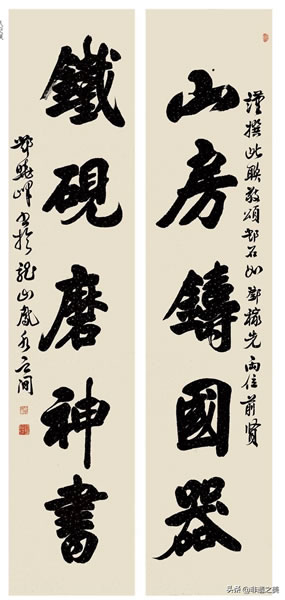 謹撰此聯敬頌鄧石如鄧稼先兩位前賢
山房鑄國器
鐵硯磨神書
書於龍山鳳水之間
头条@非遗之美